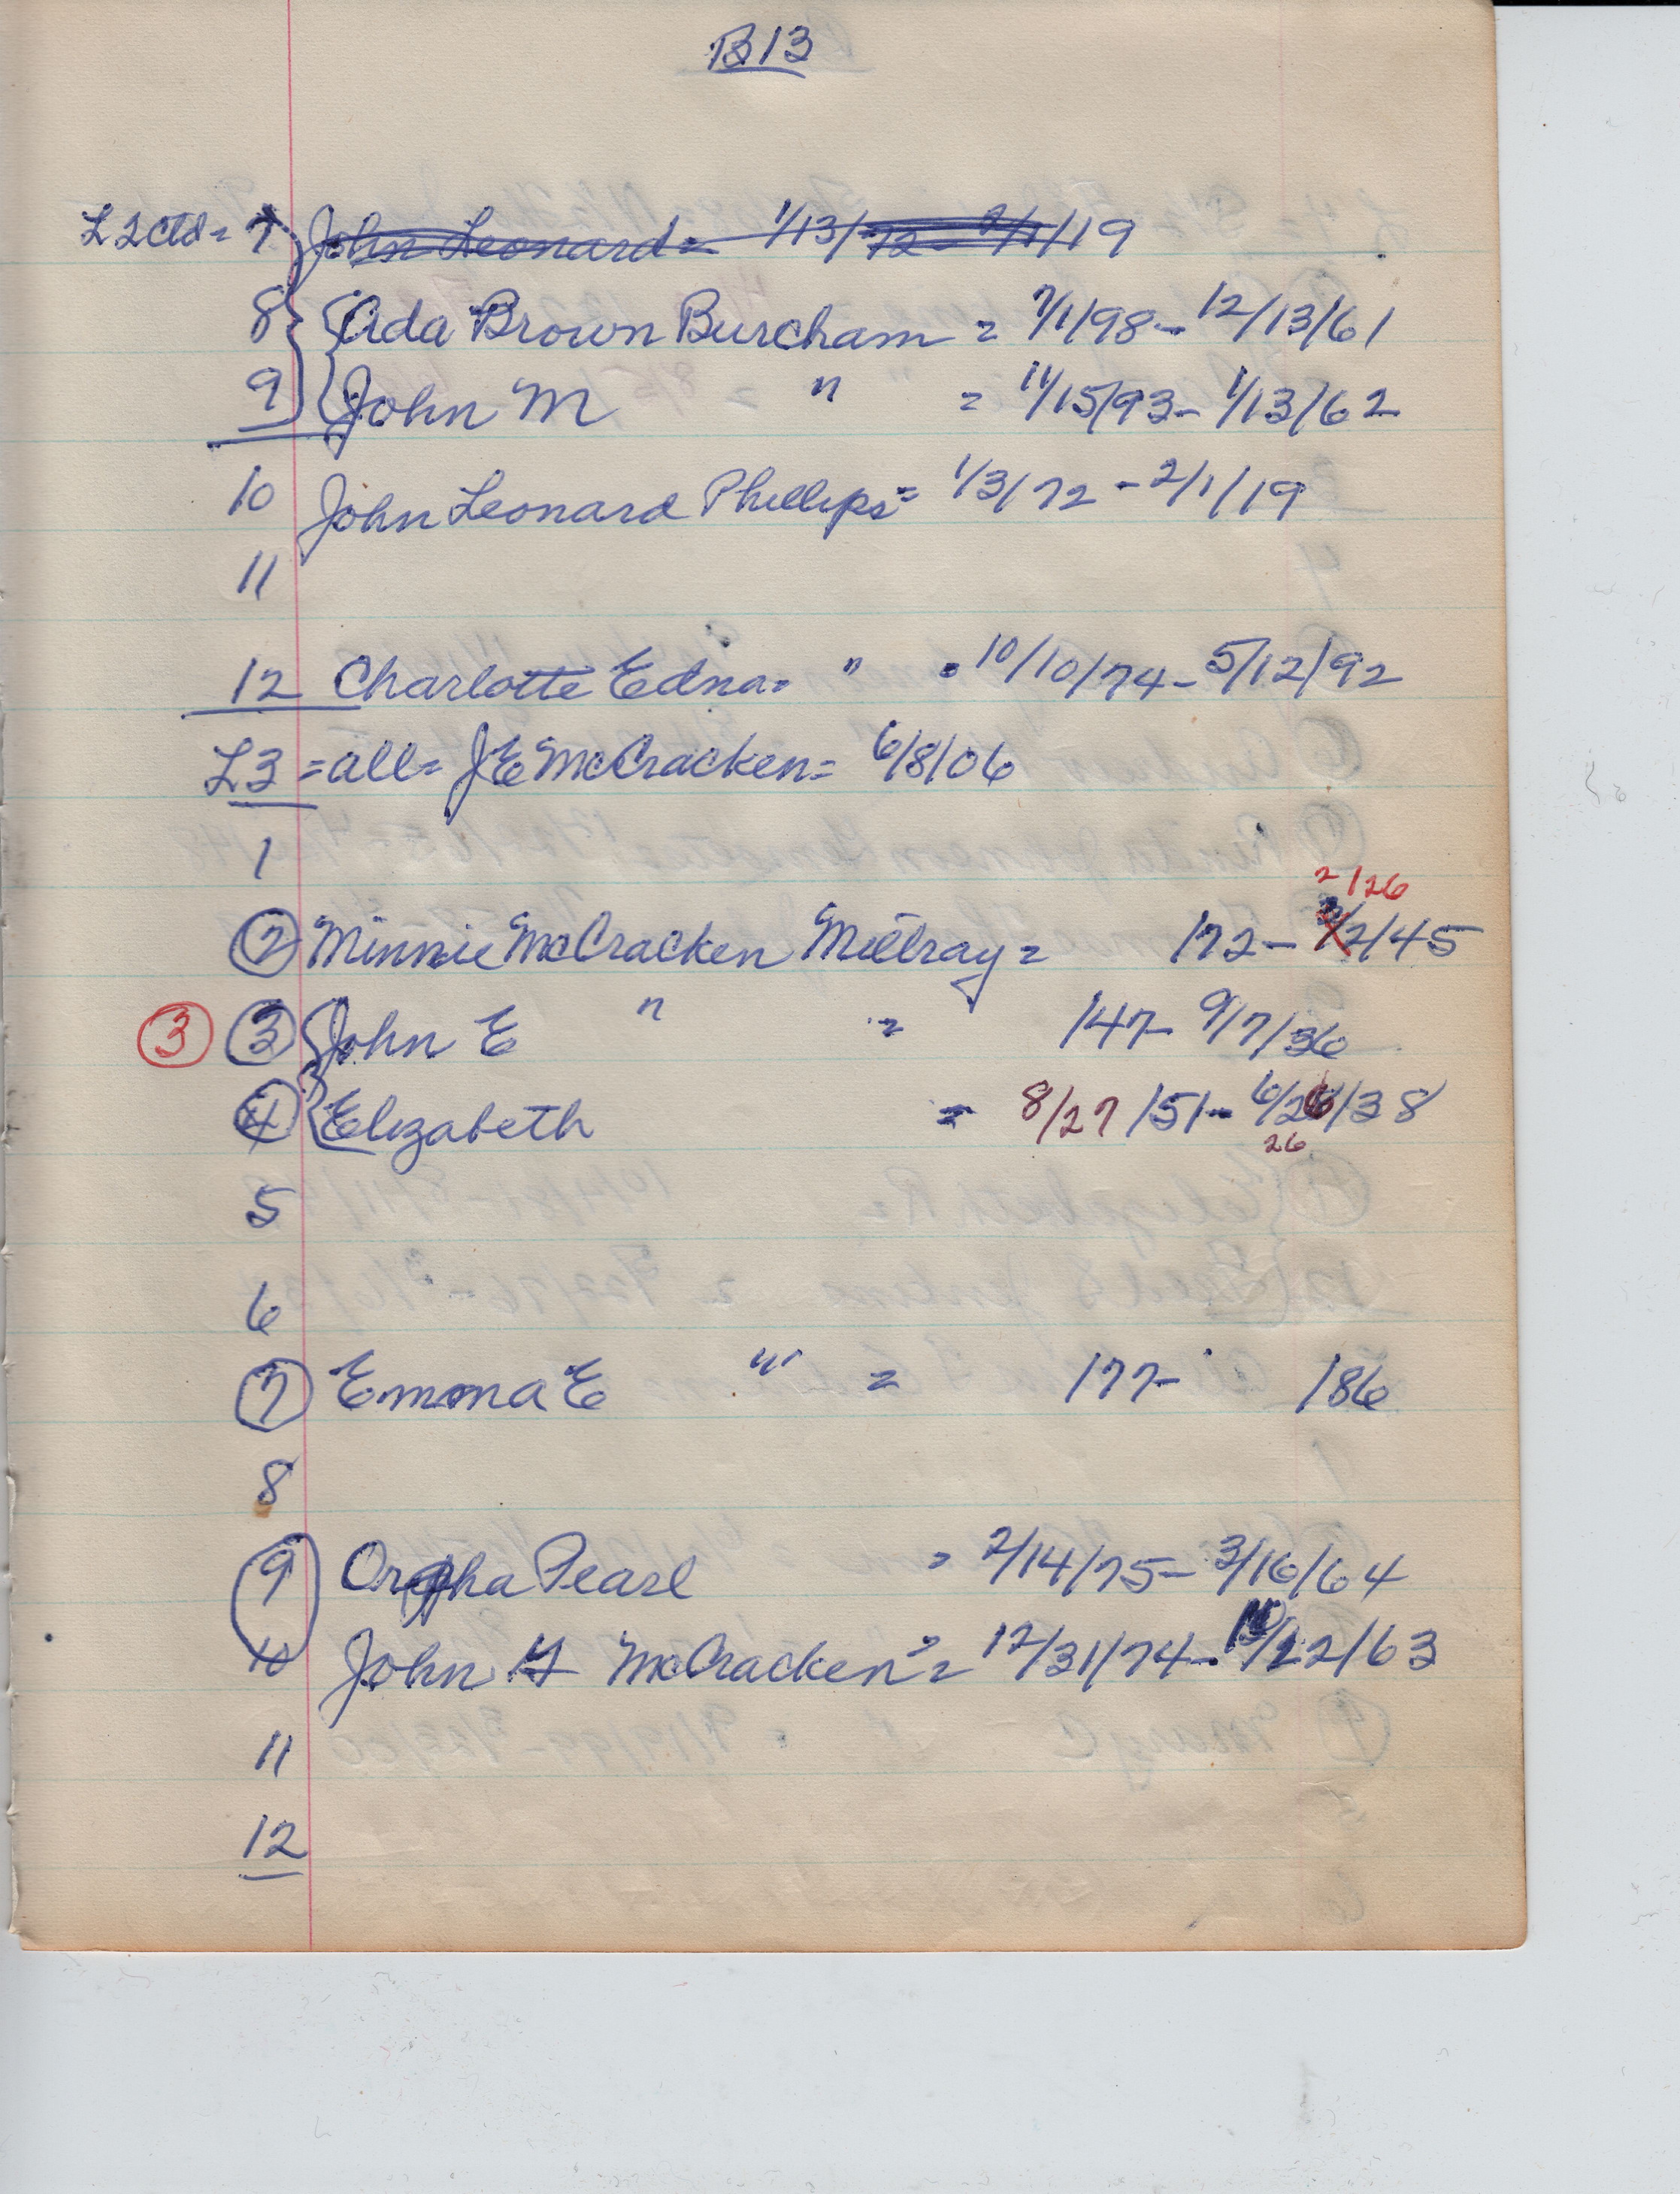 B13
L2ctd = 7 John Leonard = 1/13/72 - 2/1/19
8 Ada Brown Burcham = 7/1/98 - 12/13/61
9 John M " = 11/15/93 - 1/13/62
10 John Leonard Phillips = 1/3/72 - 2/1/19
11
12 Charlotte Edna = " = 10/10/74 - 5/12/92
L3 = all = J E McCracken = 6/8/06
1
2/26
2 Minnie McCracken Millray = /72 - 2/2/45
3 3 John E " = /47 - 9/7/36
4 Elizabeth = 8/27/51 - 6/26/38
26
5
6
7 Emma E " = /77 - /86
8
9 Orpha Pearl = 2/14/75 - 3/16/64
10 John H McCracken = 12/31/74 - 10/22/63
11
12